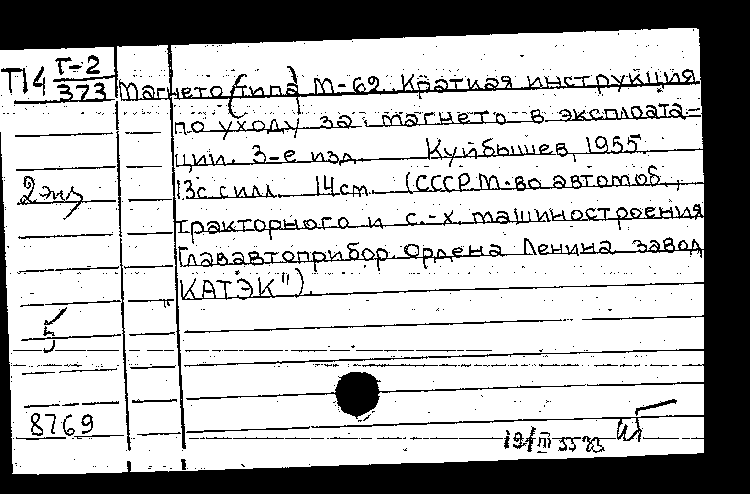 П14 Т-2
373
Магнето (типа) М-62. Краткая инструкция
по уходу за магнето в эксплоата-
ции. 3-е изд. Куйбышев, 1955.
2 экз
13с с илл. 14см. (СССР М-во автомоб.,
тракторного и с.-х. машиностроения
Глававтоприбор. Ордена Ленина завод
"КАТЭК").
5
8769
19/III 55